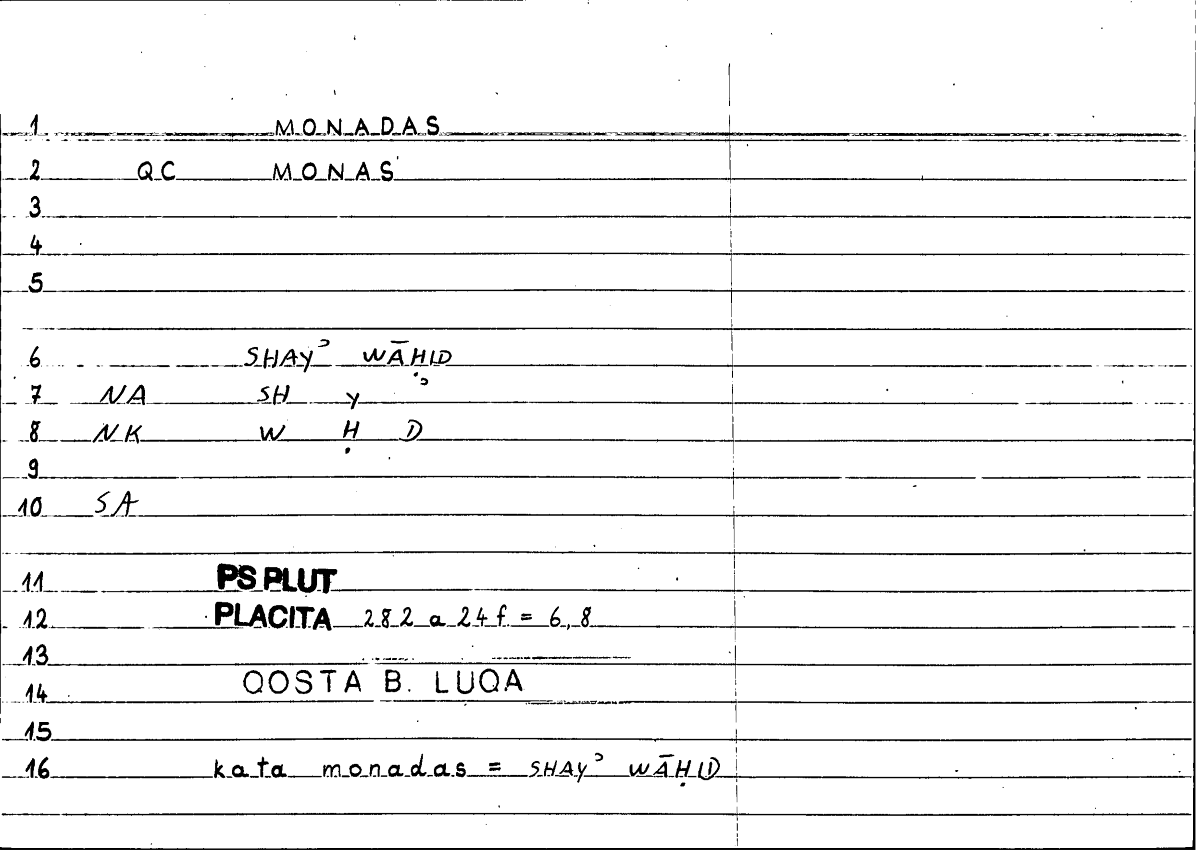 1 MONADAS
2 QC MONAS
3
4
5
6 SHAYʾ WĀḤID
7 NA SH Y ʾ
8 NK W Ḥ D
9
10 SA
11 PS PLUT
12 PLACITA 282 a 24 f. = 6,8
13
14 QOSTA B. LUQA
15
16 kata monadas = SHAYʾ WĀḤID